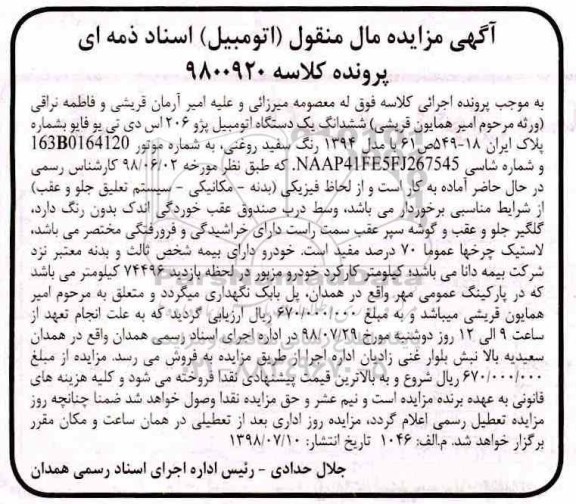 آگهی مزایده مال منقول (اتومبیل) اسناد ذمه ای
پرونده کلاسه ۹۸۰۰۹۲۰
به موجب پرونده اجرائی کلاسه فوق له معصومه میرزائی و علیه امیر آرمان قریشی و فاطمه نراقی
(ورثه مرحوم امیر همایون قریشی) ششدانگ یک دستگاه اتومبیل پژو ۲۰۶ اس دی تی یو فایو بشماره
پلاک ایران ۱۸-۵۴۹ص۶۱ با مدل ۱۳۹۴ رنگ سفید روغنی، به شماره موتور 163B0164120
و شماره شاسی NAAP41FE5FJ267545. که طبق نظر مورخه ۹۸/۰۶/۰۲ کارشناس رسمی
در حال حاضر آماده به کار است و از لحاظ فیزیکی (بدنه - مکانیکی - سیستم تعلیق جلو و عقب)
از شرایط مناسبی برخوردار می باشد، وسط درب صندوق عقب خوردگی اندک بدون رنگ دارد،
گلگیر جلو و عقب و گوشه سپر عقب سمت راست دارای خراشیدگی و فرورفتگی مختصر می باشد،
لاستیک چرخها عموما ۷۰ درصد مفید است. خودرو دارای بیمه شخص ثالث و بدنه معتبر نزد
شرکت بیمه دانا می باشد؛ کیلومتر کارکرد خودرو مزبور در لحظه بازدید ۷۴۴۹۶ کیلومتر می باشد
که در پارکینگ عمومی مهر واقع در همدان، پل بابک نگهداری میگردد و متعلق به مرحوم امیر
همایون قریشی میباشد و به مبلغ ۶۷۰/۰۰۰/۰۰۰ ریال ارزیابی گردید که به علت انجام تعهد از
ساعت ۹ الی ۱۲ روز دوشنبه مورخ ۹۸/۰۷/۲۹ در اداره اجرای اسناد رسمی همدان واقع در همدان
سعیدیه بالا نبش بلوار غنی زادیان اداره اجرا از طریق مزایده به فروش می رسد. مزایده از مبلغ
۶۷۰/۰۰۰/۰۰۰ ریال شروع و به بالاترین قیمت پیشنهادی نقدا فروخته می شود و کلیه هزینه های
قانونی به عهده برنده مزایده است و نیم عشر و حق مزایده نقدا وصول خواهد شد ضمنا چنانچه روز
مزایده تعطیل رسمی اعلام گردد، مزایده روز اداری بعد از تعطیلی در همان ساعت و مکان مقرر
برگزار خواهد شد. م.الف: ۱۰۴۶ تاریخ انتشار: ۱۳۹۸/۰۷/۱۰
جلال حدادی - رئیس اداره اجرای اسناد رسمی همدان